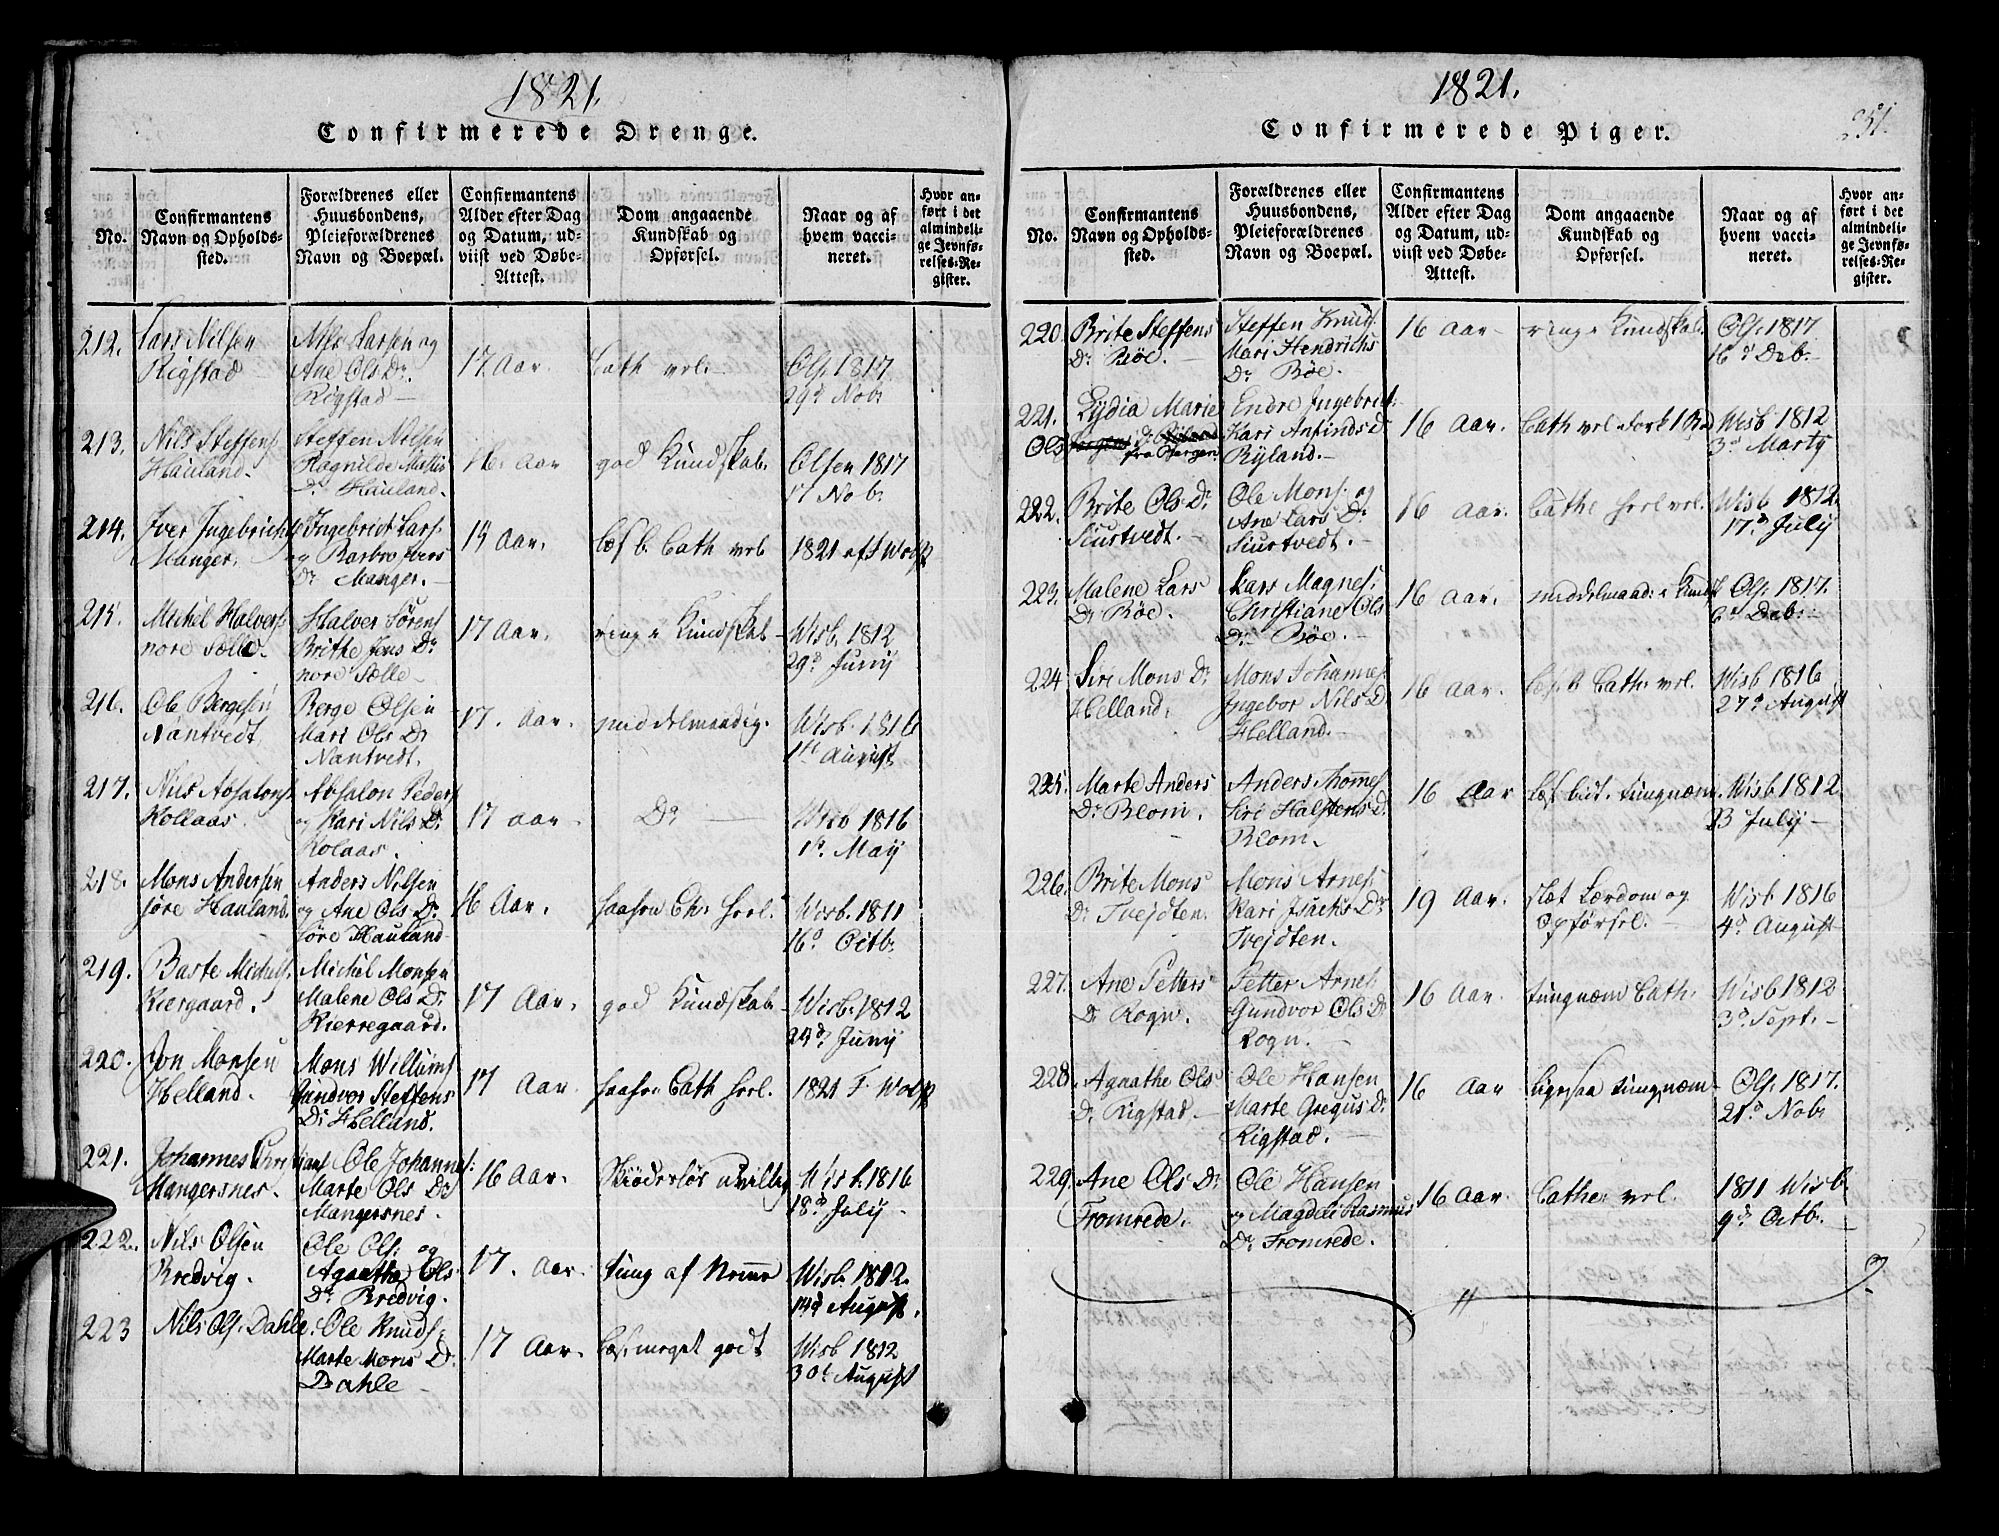 1821.
Confirmerede Drenge.
No.
Confirmantens
Navn og Opholds-
sted.
Forældrenes eller
Huusbondens,
Pleieforældrenes
Navn og Boepæl.
Confirmantens
Alder efter Dag
og Datum, ud-
viist ved Døbe-
Attest.
Dom angaaende
Kundskab og
Opførsel.
Naar og af
hvem vacci-
neret.
Hvor an-
ført i det
almindeli-
ge Jevnfø-
relses-Re-
gister.
212. Lars Nilsen
Rigstad
Nils Larsen og
Ane Ols Dr
Rigstad
17 Aar.
Cath vel.
Ols. 1817
29d Nobr
213. Nils Steffens
Hauland.
Steffen Nilsen
Ragnilde
Dr Hauland.
16. Aar
god Kundskab.
Olsen 1817
17 Nobr
214. Iver Ingebrichts
Manger.
Ingebrict Lars.
og Barbro Ivers
Dr Manger.
Aar.
læs b. Cath vel
1821 af F Wolff
215. Michel Halvers.
nore Sælle.
Halver Sørens
Brithe Jens Dr
nore Sælle
17 Aar.
ringe Kundskab
Wisb. 1812
29d Junij
216. Ole Bergesen
Nantvedt
Berge Olsen
Mari Ols Dr
Nantvedt.
17. Aar.
middelmaadig.
Wisb. 1816
1st August
217. Nils Absalons
Kollaas.
Absalon Peders
og Kari Nils Dr
Kolaas.
17 aar
Do
Wisb 1816
1st Maij
218. Mons Andersen
søre Hauland.
Anders Nilsen
og Ane Ols Dr
søre Hauland
16 Aar.
saasom
Wisb. 1811
16d Octbr
219. Baste Michels.
Kiergaard.
Michel Monsen
Malene Ols Dr
Kierregaard.
17 Aar.
god Kundskab
Wisb. 1812
24d Junij
220. Jon Monsen
Helland.
Mons Willums
Gundvor Steffens
Dr Helland.
17 Aar.
saasom Cath
1821 F. Wolff
221. Johannes Christians
Mangersnes.
Ole Johannes.
Marte Ols Dr
Mangersnes.
16 Aar.
Skiødesløs uvillig
Wisb. 1816
18d Julij
222. Nils Olsen
Bredvig.
Ole Ols. og
Agaathe Ols
Dr Bredvig.
17. Aar.
tung af Nemme
Wisb. 1812.
14d August.
223 Nils Ols. Dahle.
Ole Knuds.
Marte Mons Dr
Dahle
17 Aar.
læs. meget godt
Wisb 1812
30d August
1821.
251.
Confirmerede Piger.
No.
Confirmantens
Navn og Opholds-
sted.
Forældrenes eller
Huusbondens,
Pleieforældrenes
Navn og Boepæl.
Confirmantens
Alder efter Dag
og Datum, ud-
viist ved Døbe-
Attest.
Dom angaaende
Kundskab og
Opførsel.
Naar og af
hvem vacci-
neret.
Hvor an-
ført i det
almindeli-
ge Jevnfø-
relses-Re-
gister.
220. Brite Steffens
Dr Bøe.
Steffen Knuds.
Mari Hendrichs
Dr Bøe.
16 Aar
ringe Kundskab.
Ols. 1817
16d Debr.
221. Lydia Marie
Ols
fra Bergen.
Endre Ingebrict.
Kari Anfinds Dr
Ryland.
16 Aar.
Cath vel
Wisb 1812
3d Martij
222. Brite Ols Dr
Siurtvedt.
Ole Mons. og
Ane Lars Dr
Siurtvedt.
16 Aar.
Cathe heel vel.
Wisb 1812.
17d Julij
223. Malene Lars
Dr Bøe.
Lars Magnes.
Christiane Ols
Dr Bøe.
16 Aar.
middelmaad: i Kundsk
Ols. 1817.
6d Debr.
224 Siri Mons Dr
Helland.
Mons Johannes.
Ingebor Nils Dr
Helland.
16 Aar.
læs. b Cath: vel.
Wisb 1816
27d August
225. Marte Anders
Dr Blom.
Anders Thomes.
Siri Halstens Dr
Blom.
16 Aar
læs. lidt. tungnæm.
Wisb 1812.
23 Julij
226. Brite Mons
Dr Tvejdten.
Mons Arnes.
Kari Isachs Dr
Tvejdten.
19 Aar.
slæt Lærdom og
Opførsel.
Wisb 1816
4d August
227. Ane Petters
Dr Rogn.
Petter Arnes
Gundvor Ols Dr
Rogn.
16 Aar.
tungnæm Cath.
Wisb 1812
3d Sept.
228. Agnathe Ols
Dr Rigstad.
Ole Hansen
Marte Gregus Dr
Rigstad.
16 Aar
ligesaa tungnæm
Ols. 1817.
21d Nobr
229 Ane Ols Dr
Fromrede.
Ole Hansen
og Magdeli Rasmus
Dr Fromrede.
16 Aar.
Cathe vel.
1811 Wisb
9d Octbr.